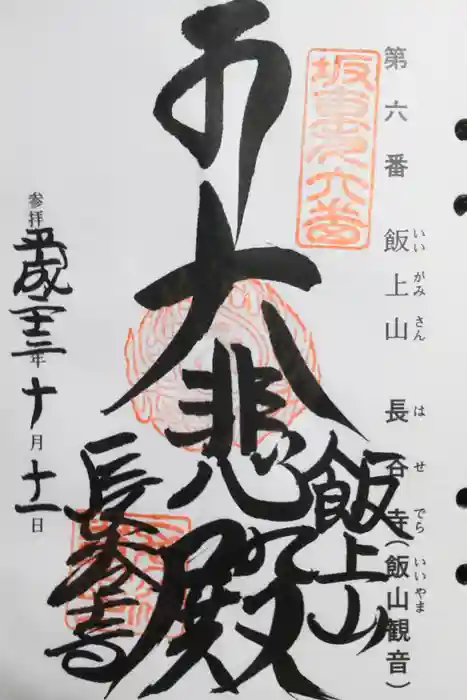 第六番 飯上山 長谷寺(飯山観音)
いいがみさん はせでら いいやま
坂東第六番
飯上山
大悲殿
長谷寺
参拝 平成二十二年十月十一日